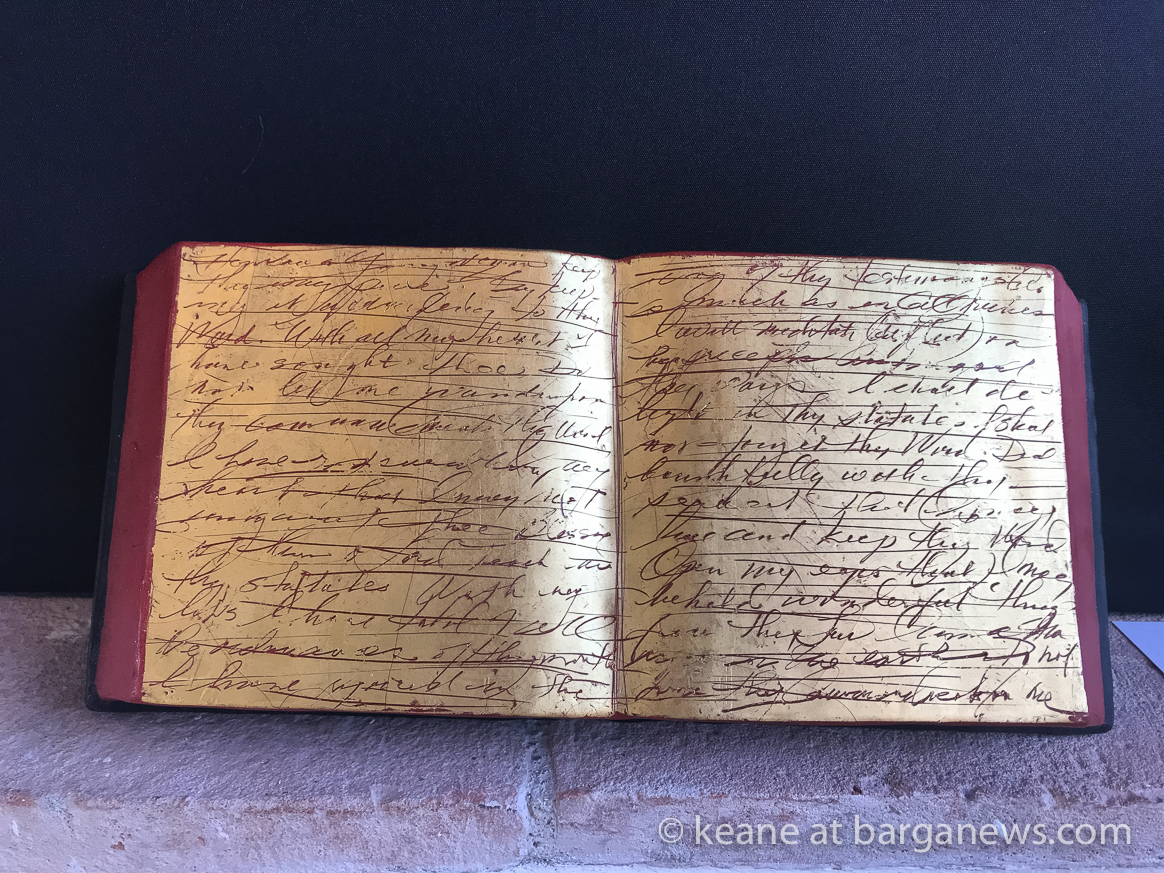 keep
thy
to thy
Word. With all my heart I
have sought Thee Do
not let me wander from
thy commandments Thy Word
I have my
heart that I may not
sin against thee Bless
O Lord teach me
thy statutes With my
lips I have told
the ordinances of thy mouth
I have rejoiced in the
way of thy testimonies
so much as in all riches
I will meditate on
thy precepts and
thy ways I shall de-
light in thy statutes I shall
not forget thy Word. Deal
bountifully with thy
servant that I may
live and keep thy Word
Open my eyes that I may
behold wonderful things
from thy law I am a
in the earth Do not
thy commandments from me
© keane at barganews.com